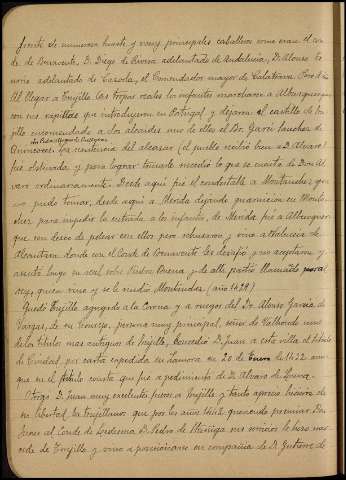 frente de numerosa hueste y varios principales caballeros como eran el con-
de de Benavente, D. Diego de Rivera adelantado de Andalucia, D. Alonso Te-
norio adelantado de Cazorla, el Comendador mayor de Calatrava. Pero de
Al llegar a Trujillo las tropas reales los infantes marcharon a Alburquerque
con sus espillas que introdujeron en Portugal y dejaron el castillo de Tru-
jillo encomendado a dos alcaides uno de ellos el Br. Garci Sanchez de
Quincoces. La resistencia del alcazar (el pueblo recibió bien a D. Alvaro)
fue obstinada y para lograr tomarle sucedió lo que se cuenta de Don Al-
varo ordinariamente. Desde aqui fue el condestable a Montanchez que
no pudo tomar, desde aqui a Merida dejando guarnicion en Montan-
chez para impedir la entrada a los infantes, de Merida fue a Alburquerque
que con deseo de pelear con ellos pero rehusaron y vino a Valencia de
Alcantara donde con el Conde de Benavente les desafió y no aceptaron y
asento luego su real sobre Piedra Buena y de alli partio llamado para el
rey, quien vino y se le rindio Montanchez (año 1429)
Quedó Trujillo agregado a la Corona y a ruegos del Dr. Alonso Garcia de
Vargas, de su Consejo, persona muy principal, señor de Valhondo uno
de los titulos mas antiguos de Trujillo, concedio D. Juan a esta villa el titulo
de Ciudad por carta expedida en Zamora en 20 de Enero de 1432 aun-
que en el titulo consta que fue a pedimento de D. Alvaro de Luna.
Otorgó D. Juan muy excelentes fueros a Trujillo y tanto aprecio hicieron de
su libertad los trujillanos que por los años 1442 queriendo premiar Don
Juan al Conde de Ledesma D. Pedro de Stúñiga sus servicios le hizo mer-
ced de Trujillo y vino a posesionarse en compañia de D. Gutierre de